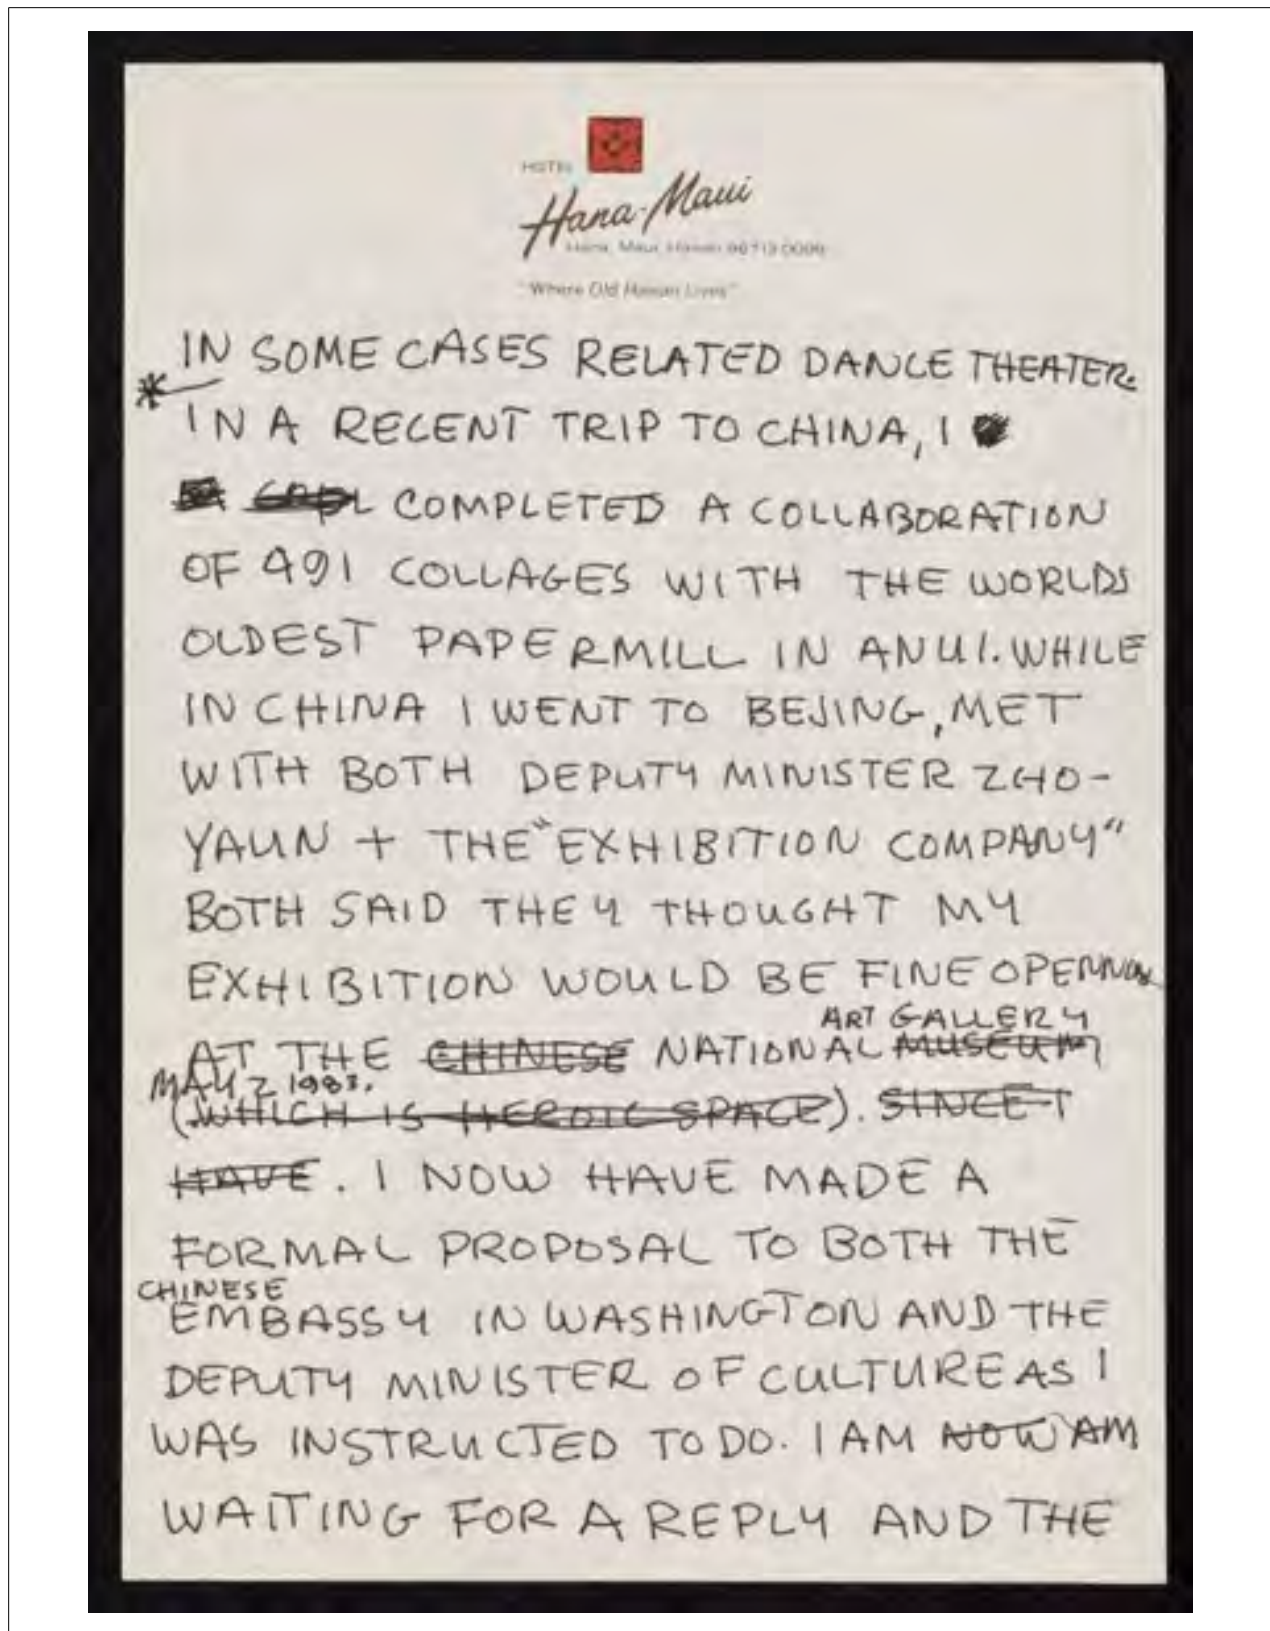 HOTEL
Hana-Maui
Hana, Maui, Hawaii 96713 0099
"Where Old Hawaii Lives"
IN SOME CASES RELATED DANCE THEATER.
* IN A RECENT TRIP TO CHINA, I
COMPLETED A COLLABORATION
OF 491 COLLAGES WITH THE WORLDS
OLDEST PAPERMILL IN ANUI. WHILE
IN CHINA I WENT TO BEJING, MET
WITH BOTH DEPUTY MINISTER ZHO-
YAUN + THE "EXHIBITION COMPANY"
BOTH SAID THEY THOUGHT MY
EXHIBITION WOULD BE FINE
ART GALLERY
AT THE CHINESE NATIONAL MUSEUM
MAY 2 1983.
(WHICH IS HEROIC SPACE). SINCE I
HAVE. I NOW HAVE MADE A
FORMAL PROPOSAL TO BOTH THE
CHINESE
EMBASSY IN WASHINGTON AND THE
DEPUTY MINISTER OF CULTURE AS I
WAS INSTRUCTED TO DO. I AM NOW AM
WAITING FOR A REPLY AND THE